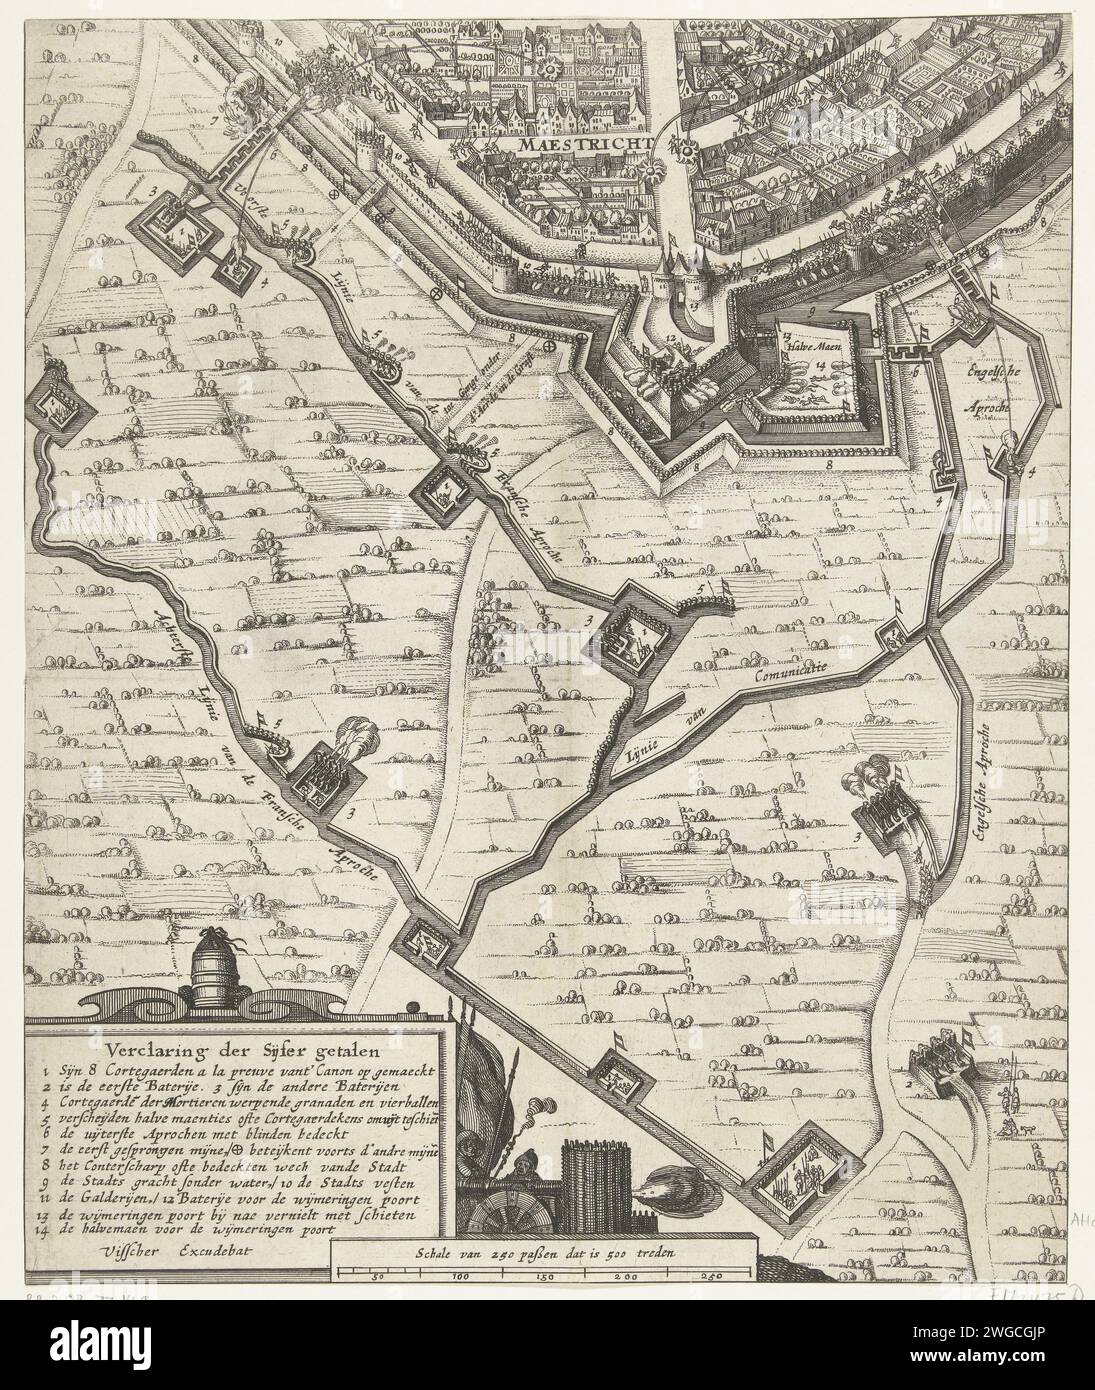 MAESTRICHT
Halve Maen
Engelsche
Aprochē
Voorste
Lijnie
van de
Fransche Aproche
Achterste
Lijnie
van de
Fransche
Aproche
Lijnie van Comunicatie
Engelsche Aprosche
Verclaring der Sijfer getalen
1 Sijn 8 Cortegaerden a la preuve vant' Canon op gemaeckt
2 is de eerste Baterije. 3 sijn de andere Baterijen
4 Cortegaerdē der Mortieren werpende granaden en vierballen
5 verscheijden halve maenties ofte Cortegaerdekens om uijt te schiet
6 de uijterste Aprochen met blinden bedeckt
7 de eerst gesprongen mijne, ⊕ beteijkent voorts d'andre mijnē
8 het Conterscharp ofte bedeckten wech vande Stadt
9 de Stadts gracht sonder water, / 10 de Stadts vesten
11 de Galderijen, / 12 Baterije voor de wijmeringen poort
13 de wijmeringen poort bij nae vernielt met schieten
14 de halvemaen voor de wijmeringen poort
Visscher Excudebat
Schale van 250 paßen dat is 500 treden
50 100 150 200 250
alamy
Image ID: 2WGCGJP
www.alamy.com